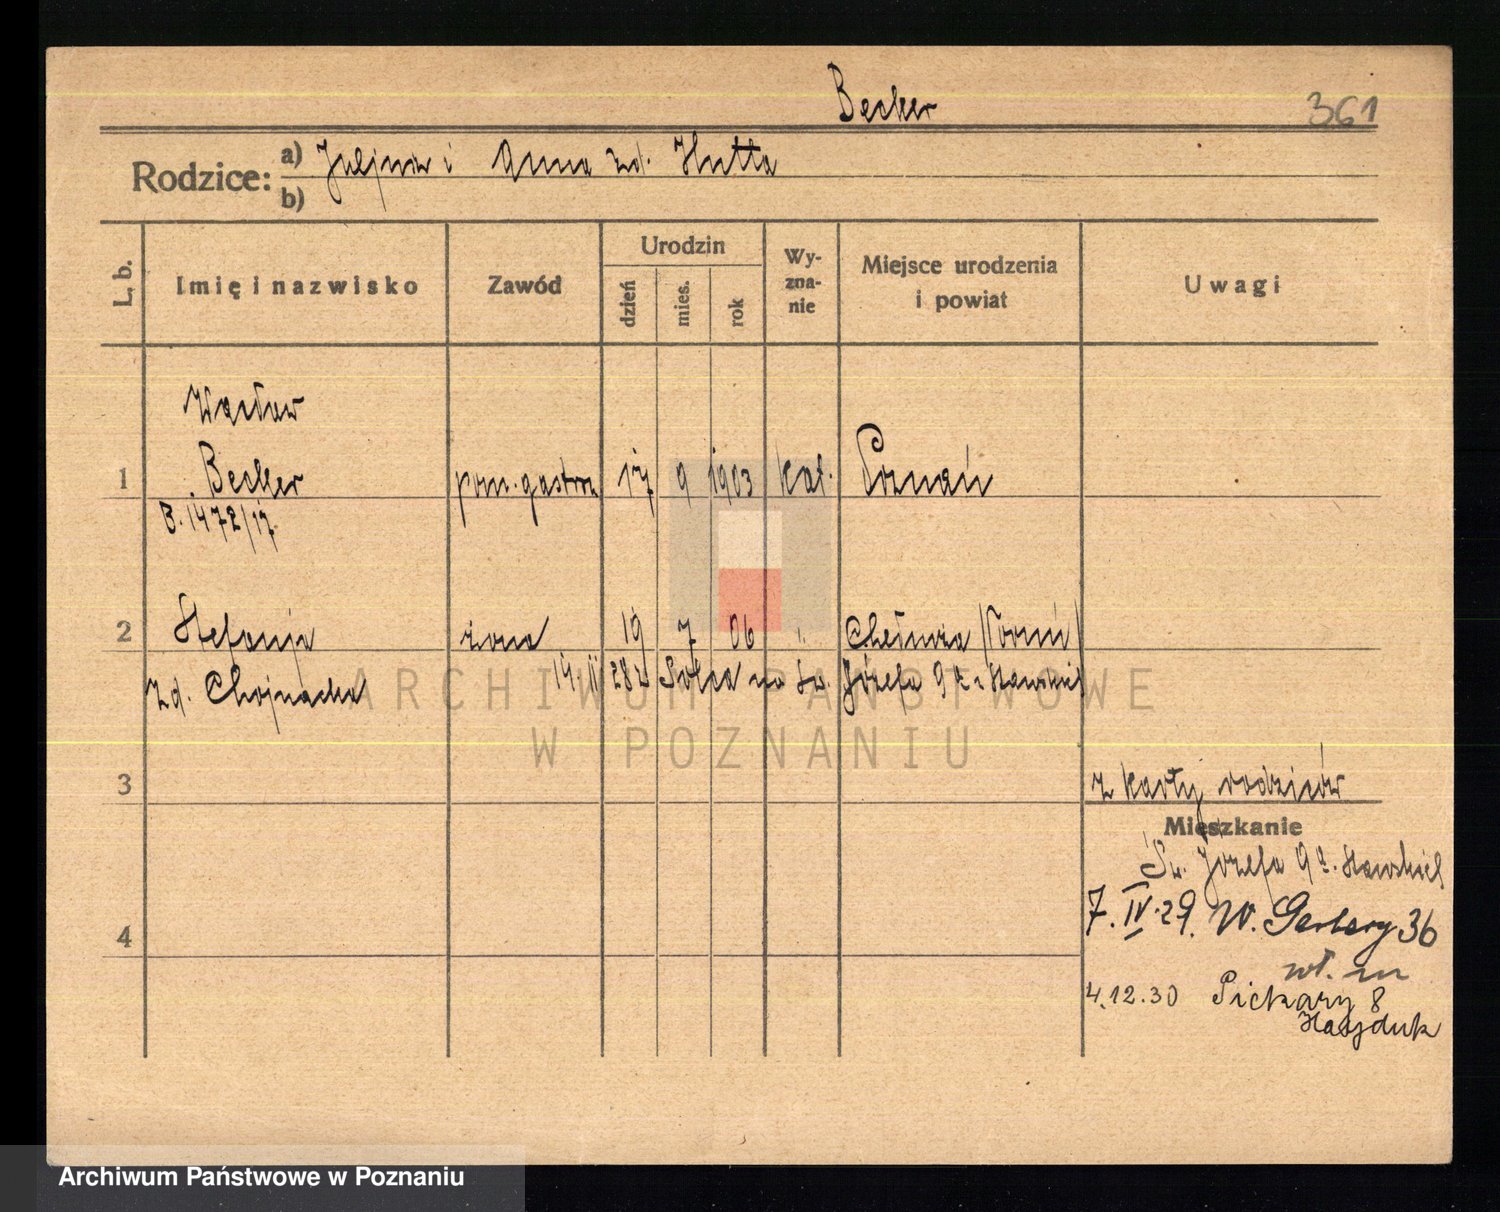 Becker
361
Rodzice:
a) Juljan i Anna zd. Hutta
b)
L. b.
Imię i nazwisko
Zawód
Urodzin
dzień
mies.
rok
Wy-
zna-
nie
Miejsce urodzenia
i powiat
Uwagi
Wacław
1 Becker pom. gastron 17 9 1903 kat. Poznań
B. 1472/17
2 Stefanja żona 19 7 06 Chełmża (Toruń)
zd. Chojnacka 14. II 28 z Solca na Św. Józefa 9
3
z karty rodziców
Mieszkanie
Św. Józefa 9
4
7. IV. 29. W. Garbary 36
wł. m
4.12.30 Piekary 8
Hajduk
ARCHIWUM PAŃSTWOWE
W POZNANIU
Archiwum Państwowe w Poznaniu